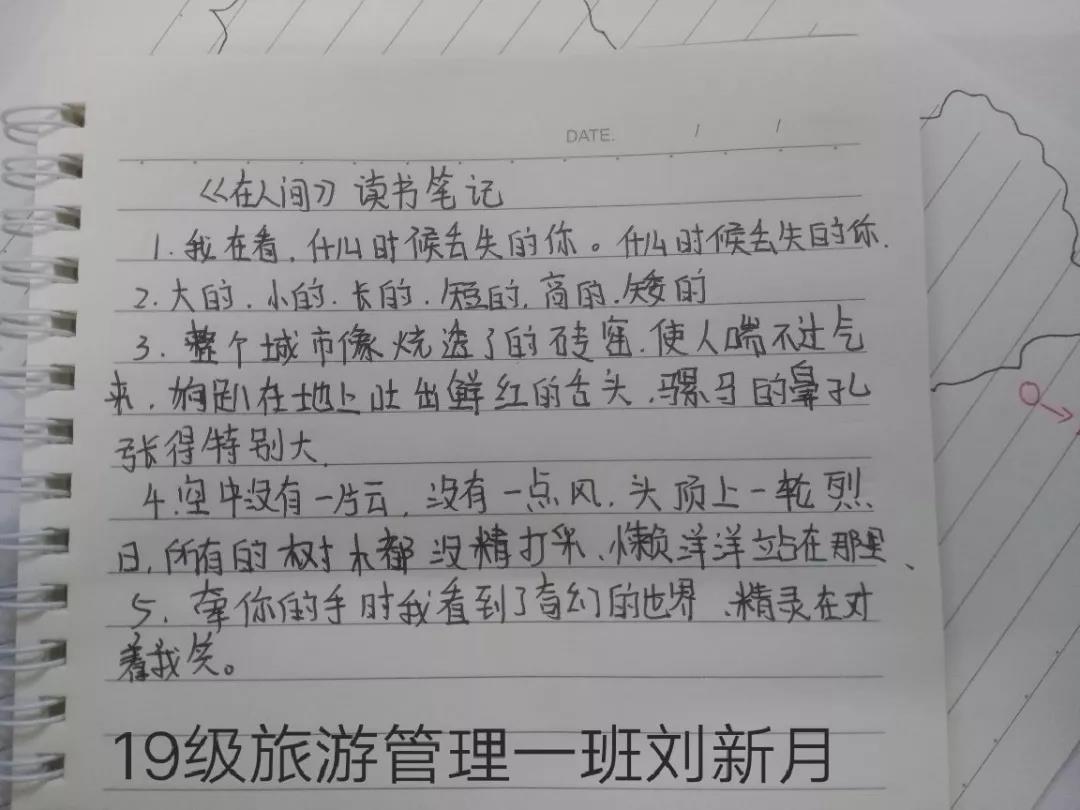 DATE. / /
《在人间》读书笔记
1. 我在看，什么时候丢失的你。什么时候丢失的你.
2. 大的、小的、长的、短的、高的、矮的
3. 整个城市像烧透了的砖窑，使人喘不过气
来，狗趴在地上吐出鲜红的舌头，骡马的鼻孔
张得特别大.
4. 空中没有一片云，没有一点风，头顶上一轮烈
日，所有的树木都没精打采、懒洋洋站在那里、
5. 牵你的手时我看到了奇幻的世界、精灵在对
着我笑。
19级旅游管理一班刘新月